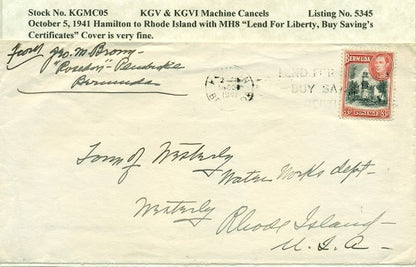 Stock No. KGMC05 KGV & KGVI Machine Cancels Listing No. 5345
October 5, 1941 Hamilton to Rhode Island with MH8 “Lend For Liberty, Buy Saving's
Certificates” Cover is very fine.
Geo. M. Brown
Pembroke
Bermuda
LEND FOR
BUY SA
BERMUDA
3d POSTAGE 3d
Town of Westerly
Water Works dept-
Westerly
Rhode Island-
U.S.A